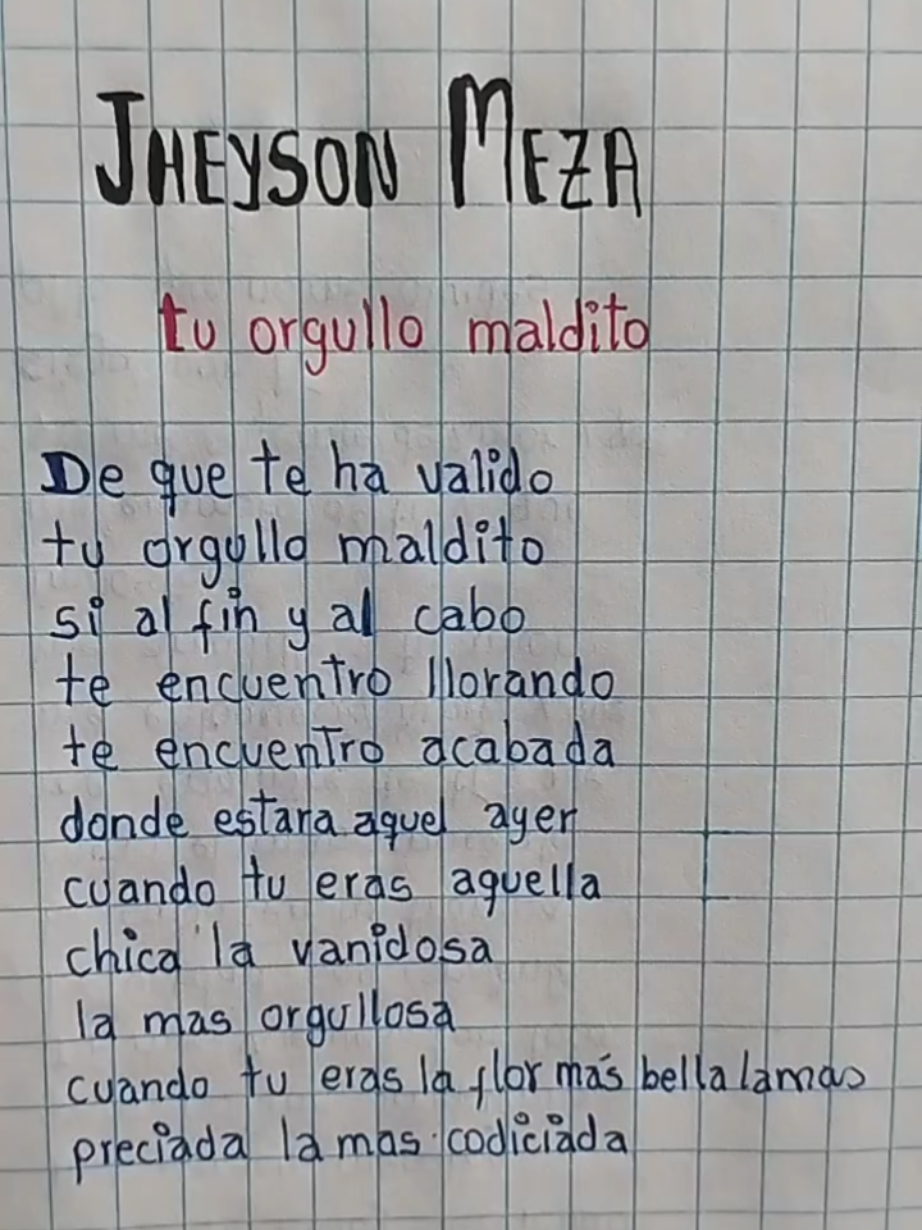 JHEYSON MEZA
tu orgullo maldito
De que te ha valido
tu orgullo maldito
si al fin y al cabo
te encuentro llorando
te encuentro acabada
donde estara aquel ayer
cuando tu eras aquella
chica la vanidosa
la mas orgullosa
cuando tu eras la flor más bella la mas
preciada la mas codiciada